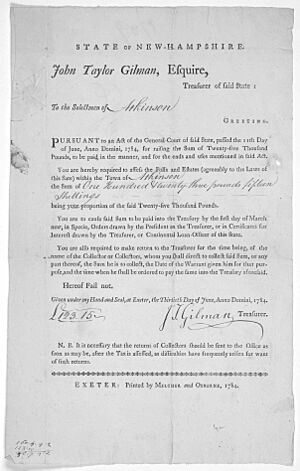 STATE OF NEW-HAMPSHIRE.
John Taylor Gilman, Esquire,
Treasurer of said State:
To the Selectmen of Atkinson
GREETING.
PURSUANT to an Act of the General-Court of said State, passed the 11th Day
of June, Anno Domini, 1784, for raising the Sum of Twenty-five thousand
Pounds, to be paid in the manner, and for the ends and uses mentioned in said Act.
You are hereby required to assess the Polls and Estates (agreeably to the Laws of
this State) within the Town of Atkinson
the Sum of One Hundred & twenty three pounds fifteen
Shillings
being your proportion of the said Twenty-five Thousand Pounds.
You are to cause said Sum to be paid into the Treasury by the first day of March
next, in Specie, Orders drawn by the President on the Treasurer, or in Certificates for
Interest drawn by the Treasurer, or Continental Loan-Officer of this State.
You are also required to make return to the Treasurer for the time being, of the
name of the Collector or Collectors, whom you shall direct to collect said Sum, or any
part thereof, the Sum he is to collect, the Date of the Warrant given him for that pur-
pose, and the time when he shall be ordered to pay the same into the Treasury aforesaid.
Hereof Fail not,
Given under my Hand and Seal, at Exeter, the Thirtieth Day of June, Anno Domini, 1784.
£123.15 J T Gilman Treasurer.
N. B. It is necessary that the returns of Collectors should be sent to the Office as
soon as may be, after the Tax is assessed, as difficulties have frequently arisen for want
of such returns.
EXETER: Printed by MELCHER and OSBORNE, 1784.